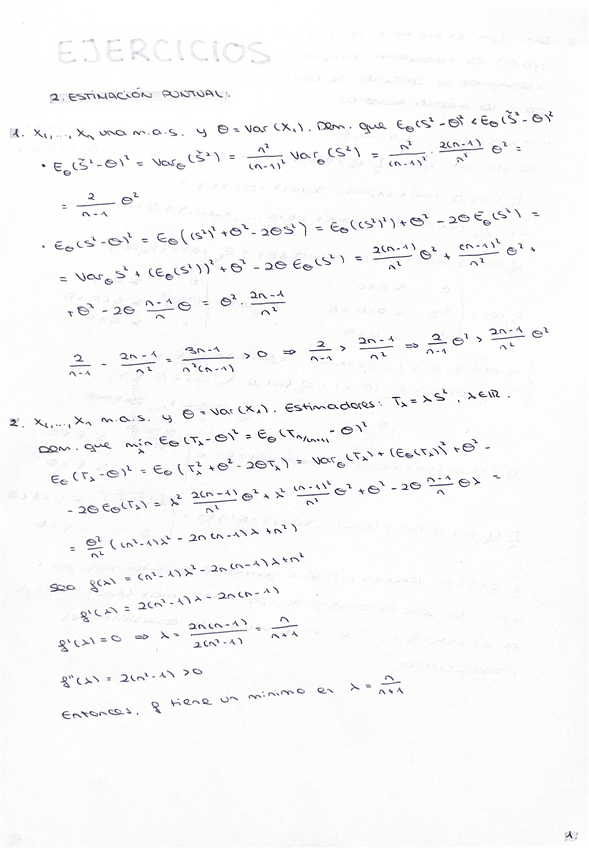 EJERCICIOS
2. ESTIMACIÓN PUNTUAL:
1. X₁,..., Xₙ una m.a.s. y Θ = Var(X₁). Dem. que E_Θ(S² - Θ)² < E_Θ(Š² - Θ)²
• E_Θ(Š² - Θ)² = Var_Θ(Š²) = n²/(n-1)² Var_Θ(S²) = n²/(n-1)² · 2(n-1)/n² Θ² =
= 2/(n-1) Θ²
• E_Θ(S² - Θ)² = E_Θ((S²)² + Θ² - 2ΘS²) = E_Θ((S²)²) + Θ² - 2Θ E_Θ(S²) =
= Var_Θ S² + (E_Θ(S²))² + Θ² - 2Θ E_Θ(S²) = 2(n-1)/n² Θ² + (n-1)²/n² Θ² +
+ Θ² - 2Θ (n-1)/n Θ = Θ² · (2n-1)/n²
2/(n-1) - (2n-1)/n² = (3n-1)/(n²(n-1)) > 0 ⇒ 2/(n-1) > (2n-1)/n² ⇒ 2/(n-1) Θ² > (2n-1)/n² Θ²
2. X₁,..., Xₙ m.a.s. y Θ = Var(X₁). Estimadores: T_λ = λS², λ∈ℝ.
Dem. que min_λ E_Θ(T_λ - Θ)² = E_Θ(T_{n/(n+1)} - Θ)²
E_Θ(T_λ - Θ)² = E_Θ(T_λ² + Θ² - 2ΘT_λ) = Var_Θ(T_λ) + (E_Θ(T_λ))² + Θ² -
- 2Θ E_Θ(T_λ) = λ² 2(n-1)/n² Θ² + λ² (n-1)²/n² Θ² + Θ² - 2Θ (n-1)/n Θλ =
= Θ²/n² ((n²-1)λ² - 2n(n-1)λ + n²)
Sea g(λ) = (n²-1)λ² - 2n(n-1)λ + n²
g'(λ) = 2(n²-1)λ - 2n(n-1)
g'(λ) = 0 ⇒ λ = 2n(n-1)/2(n²-1) = n/(n+1)
g''(λ) = 2(n²-1) > 0
Entonces, g tiene un mínimo en λ = n/(n+1)
1.